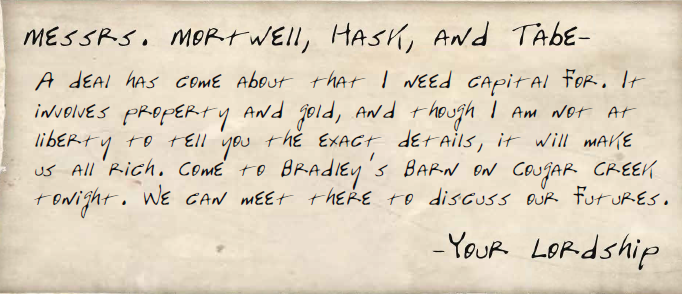 Messrs. Mortwell, Hask, and Tabe-
A deal has come about that I need capital for. It
involves property and gold, and though I am not at
liberty to tell you the exact details, it will make
us all rich. Come to Bradley's Barn on Cougar Creek
tonight. We can meet there to discuss our futures.
-Your Lordship